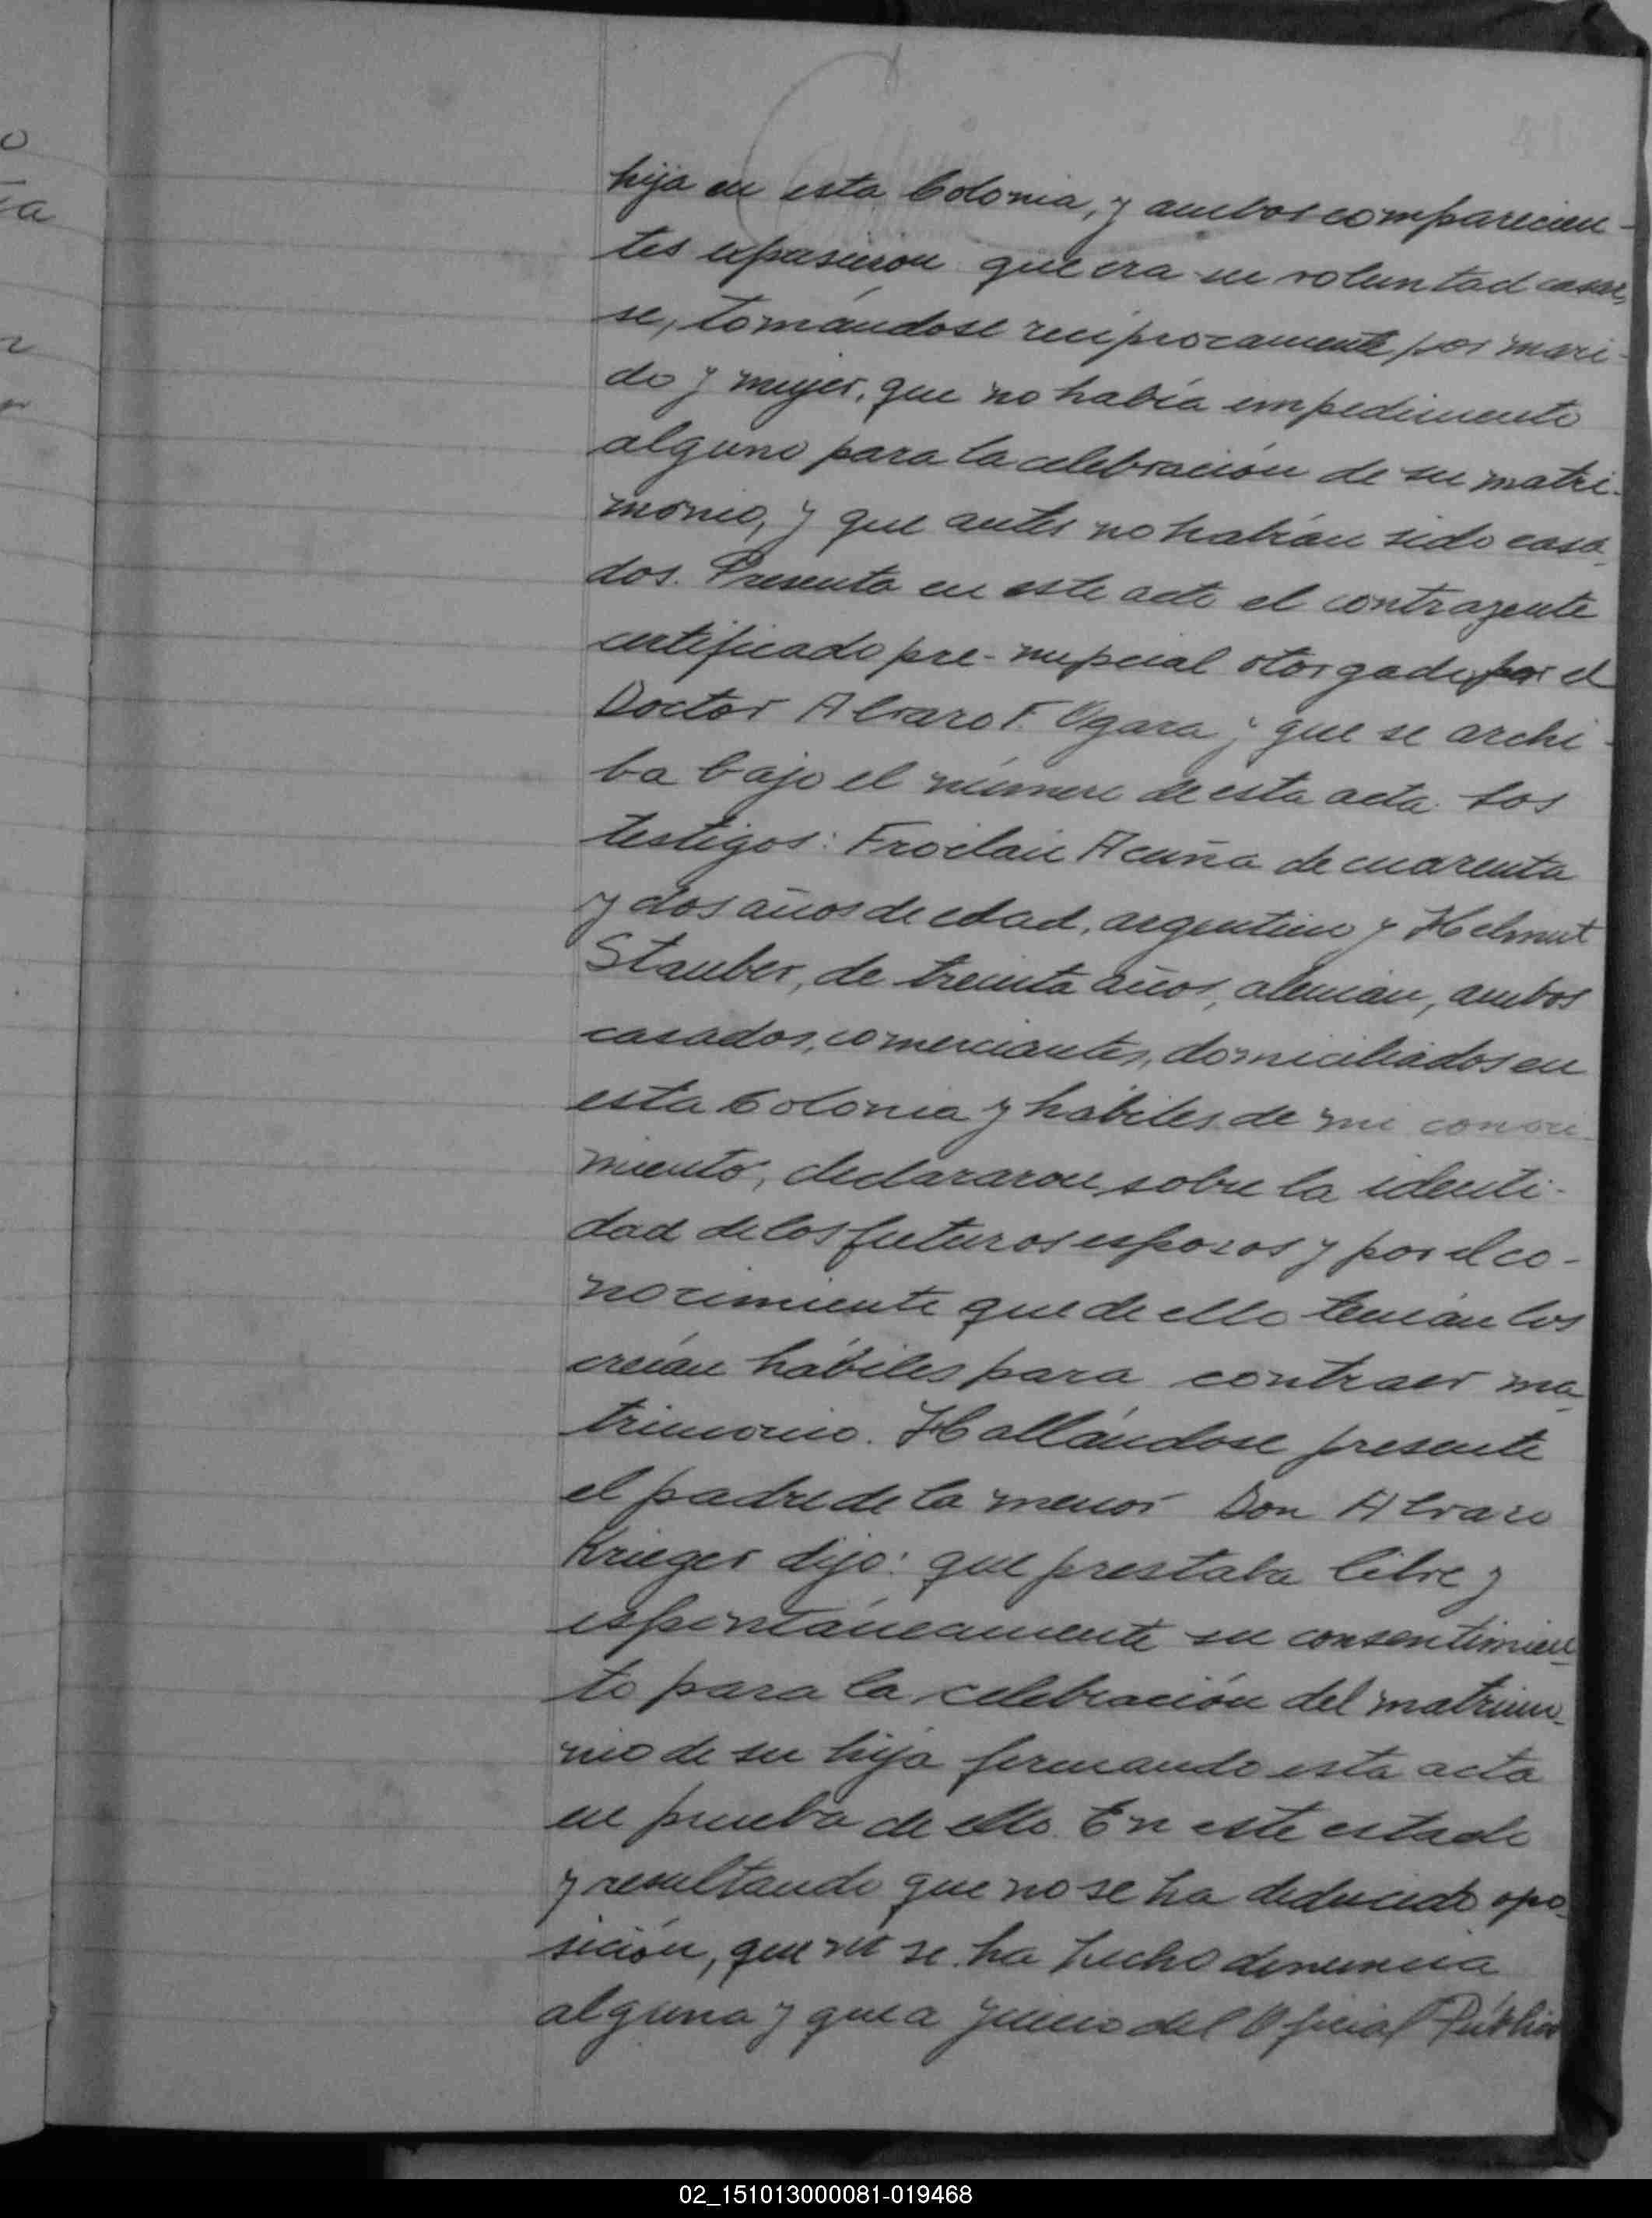 hija en esta Colonia, y ambos comparecien-
tes expusieron que era su voluntad casar,
se, tomándose recíprocamente por mari-
do y mujer, que no había impedimento
alguno para la celebración de su matri-
monio, y que antes no habían sido casa-
dos. Presenta en este acto el contrayente
certificado pre-nupcial otorgado por el
Doctor Alvaro F. Ogara y que se archi-
ba bajo el número de esta acta. Los
testigos: Froilán Acuña de cuarenta
y dos años de edad, argentino y Helmut
Stauber, de treinta años, alemán, ambos
casados, comerciantes, domiciliados en
esta Colonia y hábiles de mi conoci-
miento, declararon sobre la identi-
dad de los futuros esposos y por el co-
nocimiento que de ello tenían los
creían hábiles para contraer ma-
trimonio. Hallándose presente
el padre de la menor Don Alvaro
Krieger dijo: que prestaba libre y
espontáneamente su consentimien-
to para la celebración del matrimo-
nio de su hija firmando esta acta
en prueba de ello. En este estado
y resultando que no se ha deducido opo-
sición, que no se ha hecho denuncia
alguna y que a juicio del Oficial Público
02_151013000081-019468